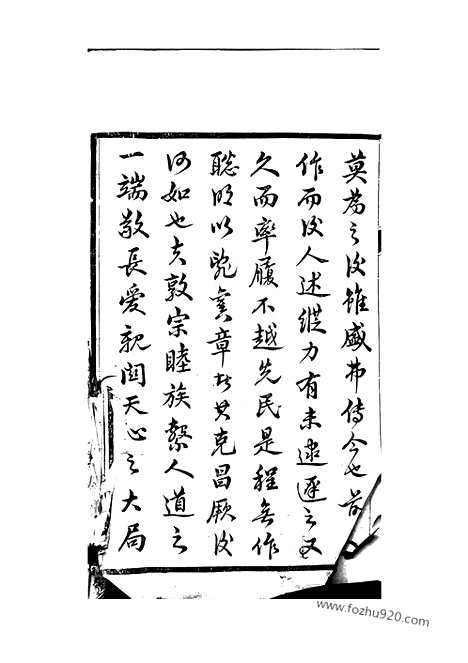 莫為之後雖盛弗傳今也前
作而後人述縱力有未逮遲之又
久而率履不越先民是程無作
聰明以亂舊章於其克昌厥後
何如也夫敦宗睦族繫人道之
一端敬長愛親關天心之大局
www.fozhu920.com